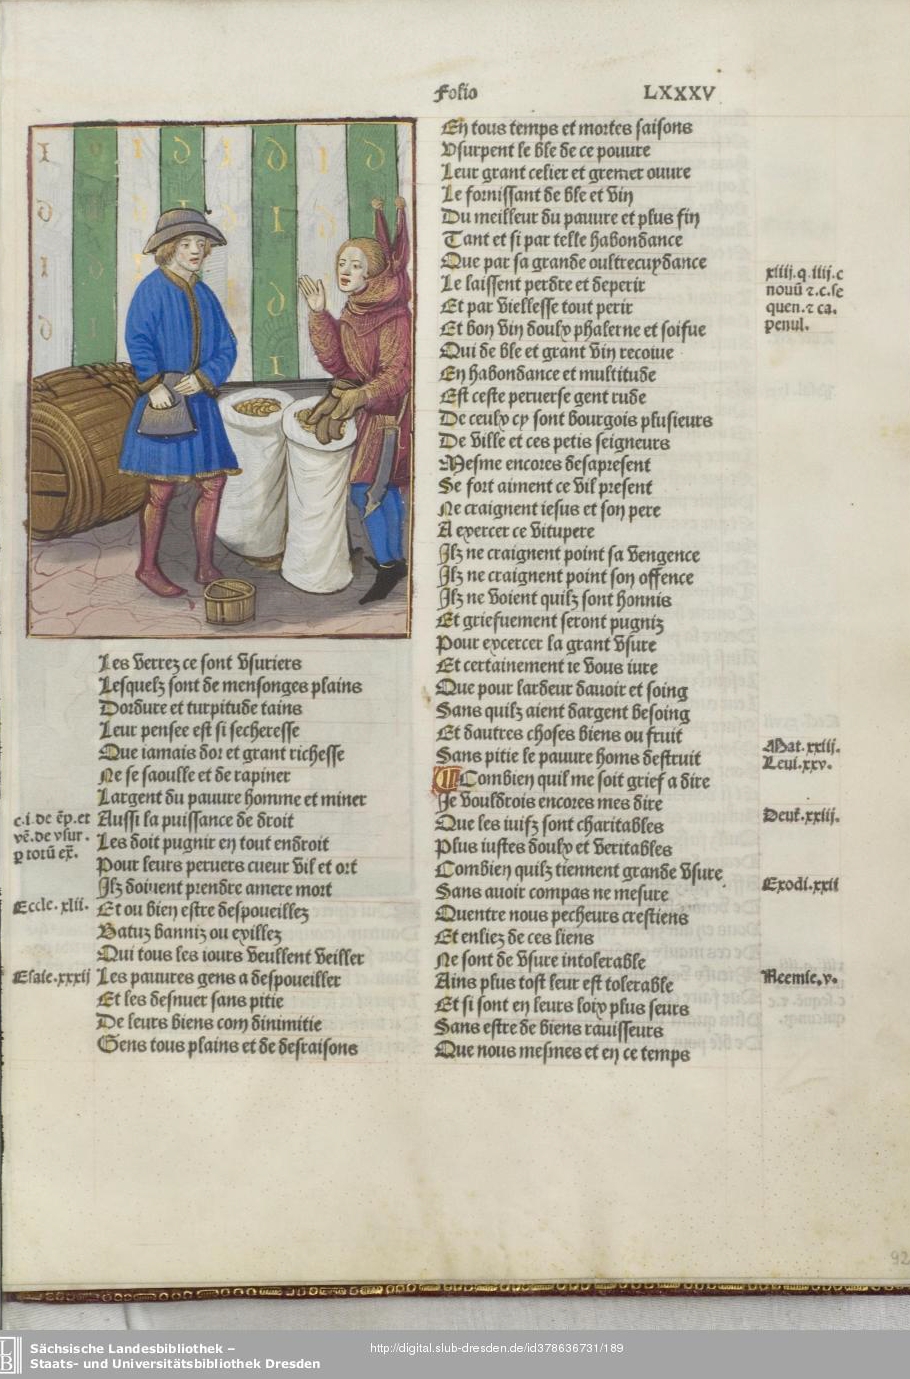 Folio LXXXV
Les verrez ce sont vsuriers
Lesquelz sont de mensonges plains
Dordure et turpitude tains
Leur pensee est si secheresse
Que iamais dor et grant richesse
Ne se saoulle et de rapiner
Largent du pauure homme et miner
Aussi la puissance de droit
Les doit pugnir en tout endroit
Pour leurs peruers cueur vil et ort
Ilz doiuent prendre amere mort
Et ou bien estre despoueillez
Batuz banniz ou exillez
Qui tous les iours veullent veiller
Les pauures gens a despoueiller
Et les desnuer sans pitie
De leurs biens com dinimitie
Gens tous plains et de desraisons
c.i.de ēp.et
vē.de vsur.
ꝑ totū ex̄.
Eccle.xlii.
Esaie.xxxii
En tous temps et mortes saisons
Vsurpent le ble de ce pouure
Leur grant celier et grenier ouure
Le fornissant de ble et vin
Du meilleur du pauure et plus fin
Tant et si par telle habondance
Que par sa grande oultrecuydance
Le laissent perdre et deperir
Et par viellesse tout perir
Et bon vin doulx phalerne et soifue
Qui de ble et grant vin recoiue
En habondance et multitude
Est ceste peruerse gent rude
De ceulx cy sont bourgois plusieurs
De ville et ces petis seigneurs
Mesme encores desapresent
Se fort aiment ce vil present
Ne craignent iesus et son pere
A exercer ce vitupere
Ilz ne craignent point sa vengence
Ilz ne craignent point son offence
Ilz ne voient quilz sont honnis
Et griefuement seront pugniz
Pour excercer la grant vsure
Et certainement ie vous iure
Que pour lardeur dauoir et soing
Sans quilz aient dargent besoing
Et dautres choses biens ou fruit
Sans pitie le pauure homs destruit
Combien quil me soit grief a dire
Je vouldrois encores mes dire
Que les iuifz sont charitables
Plus iustes doulx et veritables
Combien quilz tiennent grande vsure
Sans auoir compas ne mesure
Quentre nous pecheurs crestiens
Et enliez de ces liens
Ne sont de vsure intolerable
Ains plus tost leur est tolerable
Et si sont en leurs loix plus seurs
Sans estre de biens rauisseurs
Que nous mesmes et en ce temps
xiiij.q.iiij.c
nouū ⁊.c.se
quen.⁊ ca.
penul.
Mat.xxiij.
Leui.xxv.
Deut.xxiij.
Exodi.xxii
Neemie.v.
92
Sächsische Landesbibliothek –
Staats- und Universitätsbibliothek Dresden
http://digital.slub-dresden.de/id378636731/189